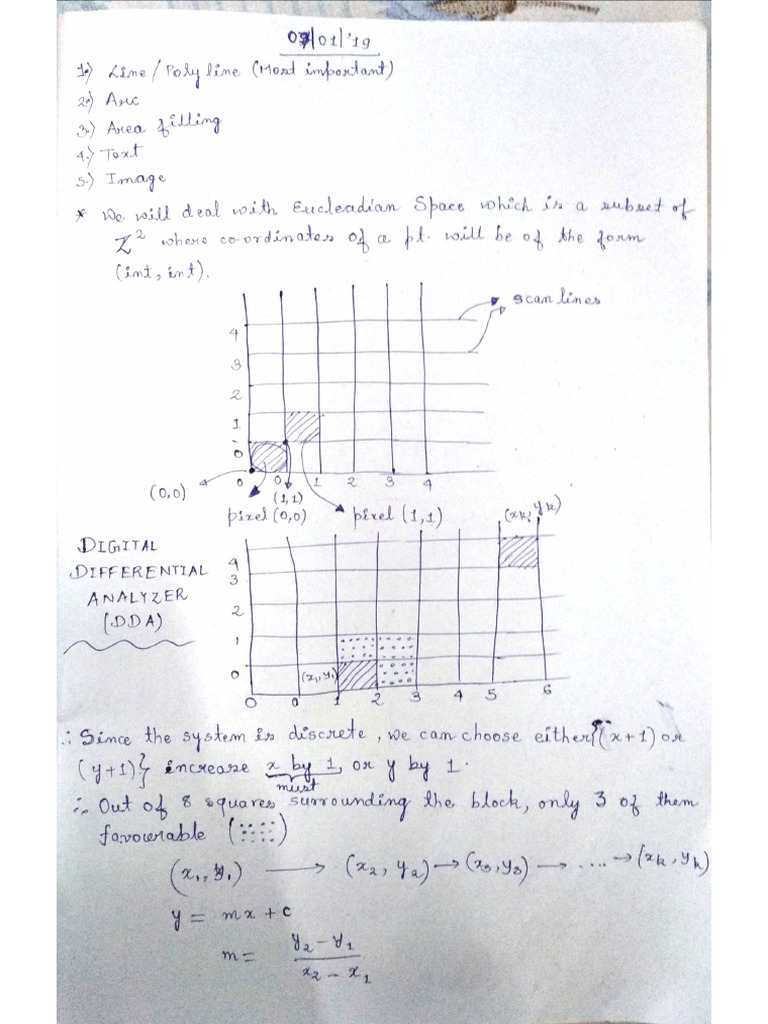 03/01/'19
1.) Line/Polyline (Most important)
2.) Arc
3.) Area filling
4.) Text
5.) Image
* We will deal with Eucleadian Space which is a subset of
Z² where co-ordinates of a pt. will be of the form
(int, int).
scan lines
4
3
2
1
0
0 0 1 2 3 4
(0,0)
(1,1)
pixel (0,0)
pixel (1,1)
(xk, yk)
DIGITAL
DIFFERENTIAL
ANALYZER
(DDA)
4
3
2
1
0
(x1, y1)
0 0 1 2 3 4 5 6
∴ Since the system is discrete, we can choose either {(x+1) or
(y+1)} increase x by 1, or y by 1.
must
∴ Out of 8 squares surrounding the block, only 3 of them
favourable (::::)
(x1, y1) → (x2, y2) → (x3, y3) → .... → (xk, yk)
y = mx + c
m = y2 - y1
x2 - x1